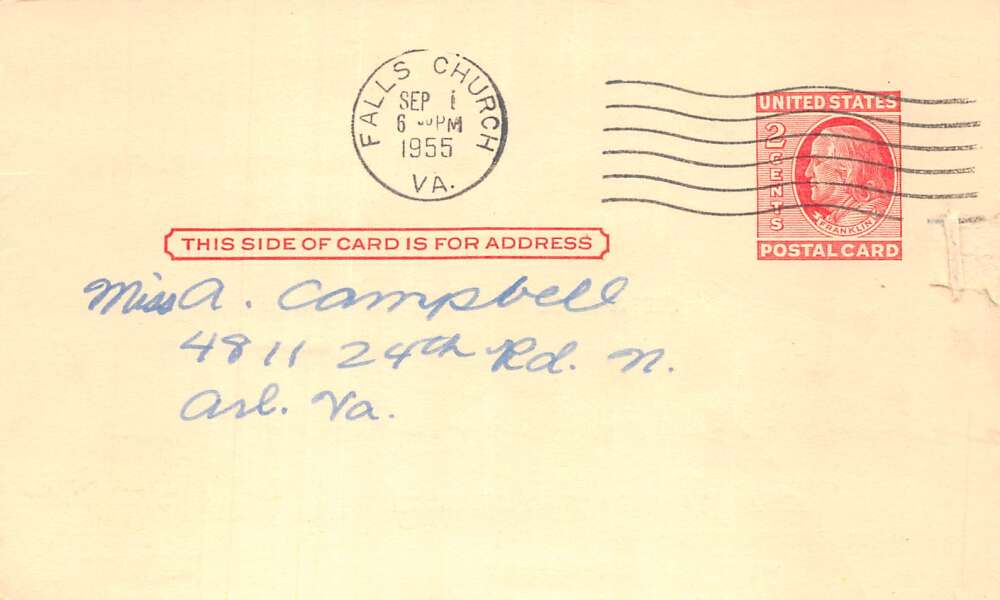 FALLS CHURCH
SEP 1
6 PM
1955
VA.
UNITED STATES
2 CENTS
FRANKLIN
POSTAL CARD
THIS SIDE OF CARD IS FOR ADDRESS
Miss A. Campbell
4811 24th Rd. N.
Arl. Va.